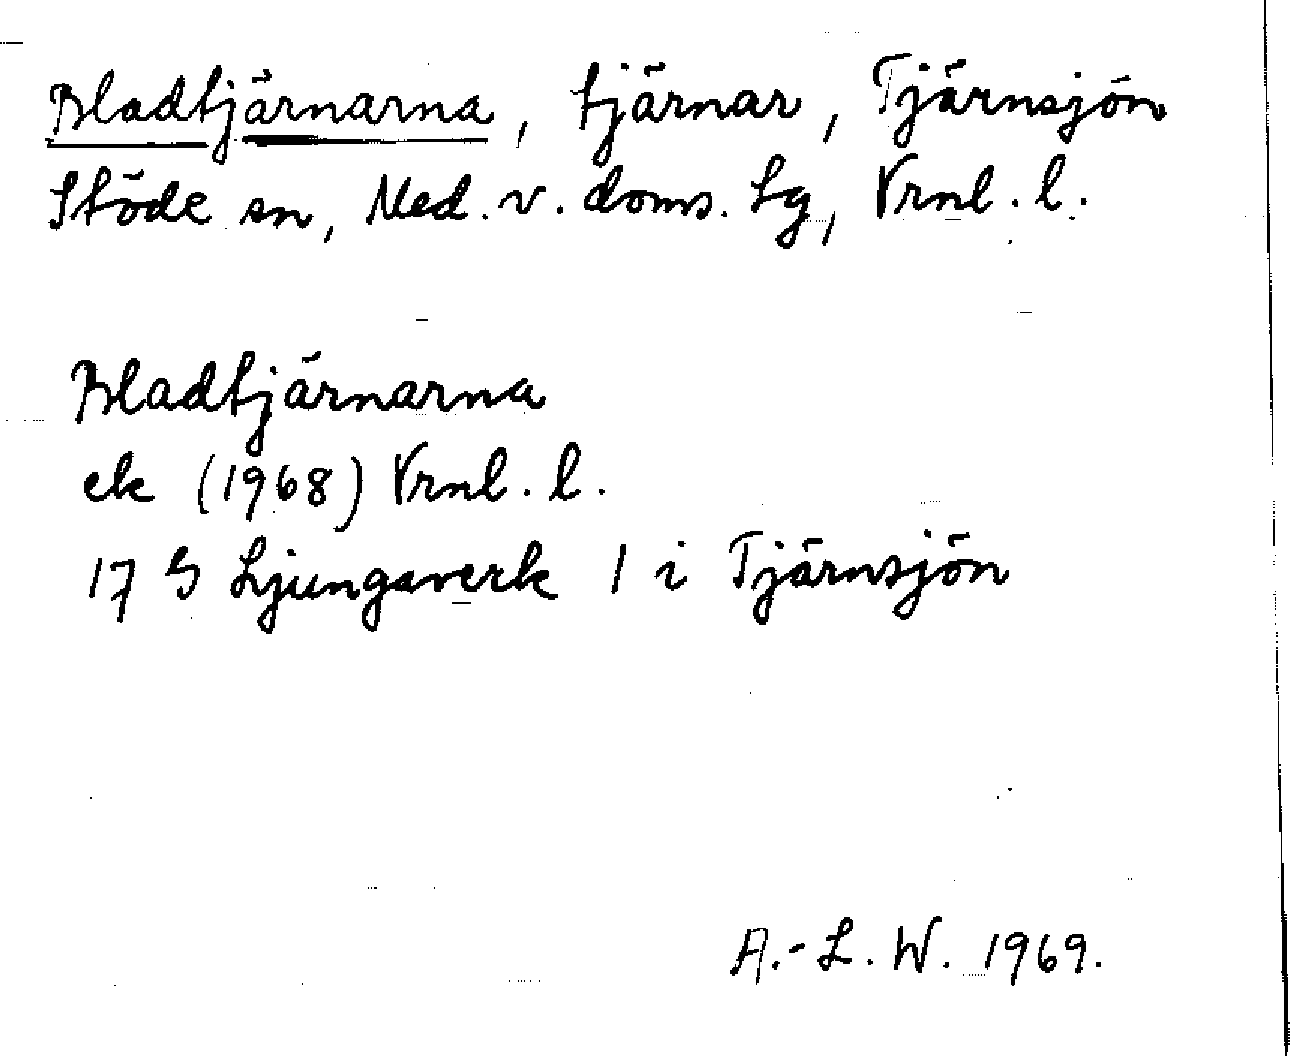 Bladtjärnarna, tjärnar, Tjärnsjön
Stöde sn, Med. v. doms. tg, Vrnl. l.
Bladtjärnarna
ek (1968) Vrnl. l.
17 G Ljungaverk 1 i Tjärnsjön
A.-L. W. 1969.